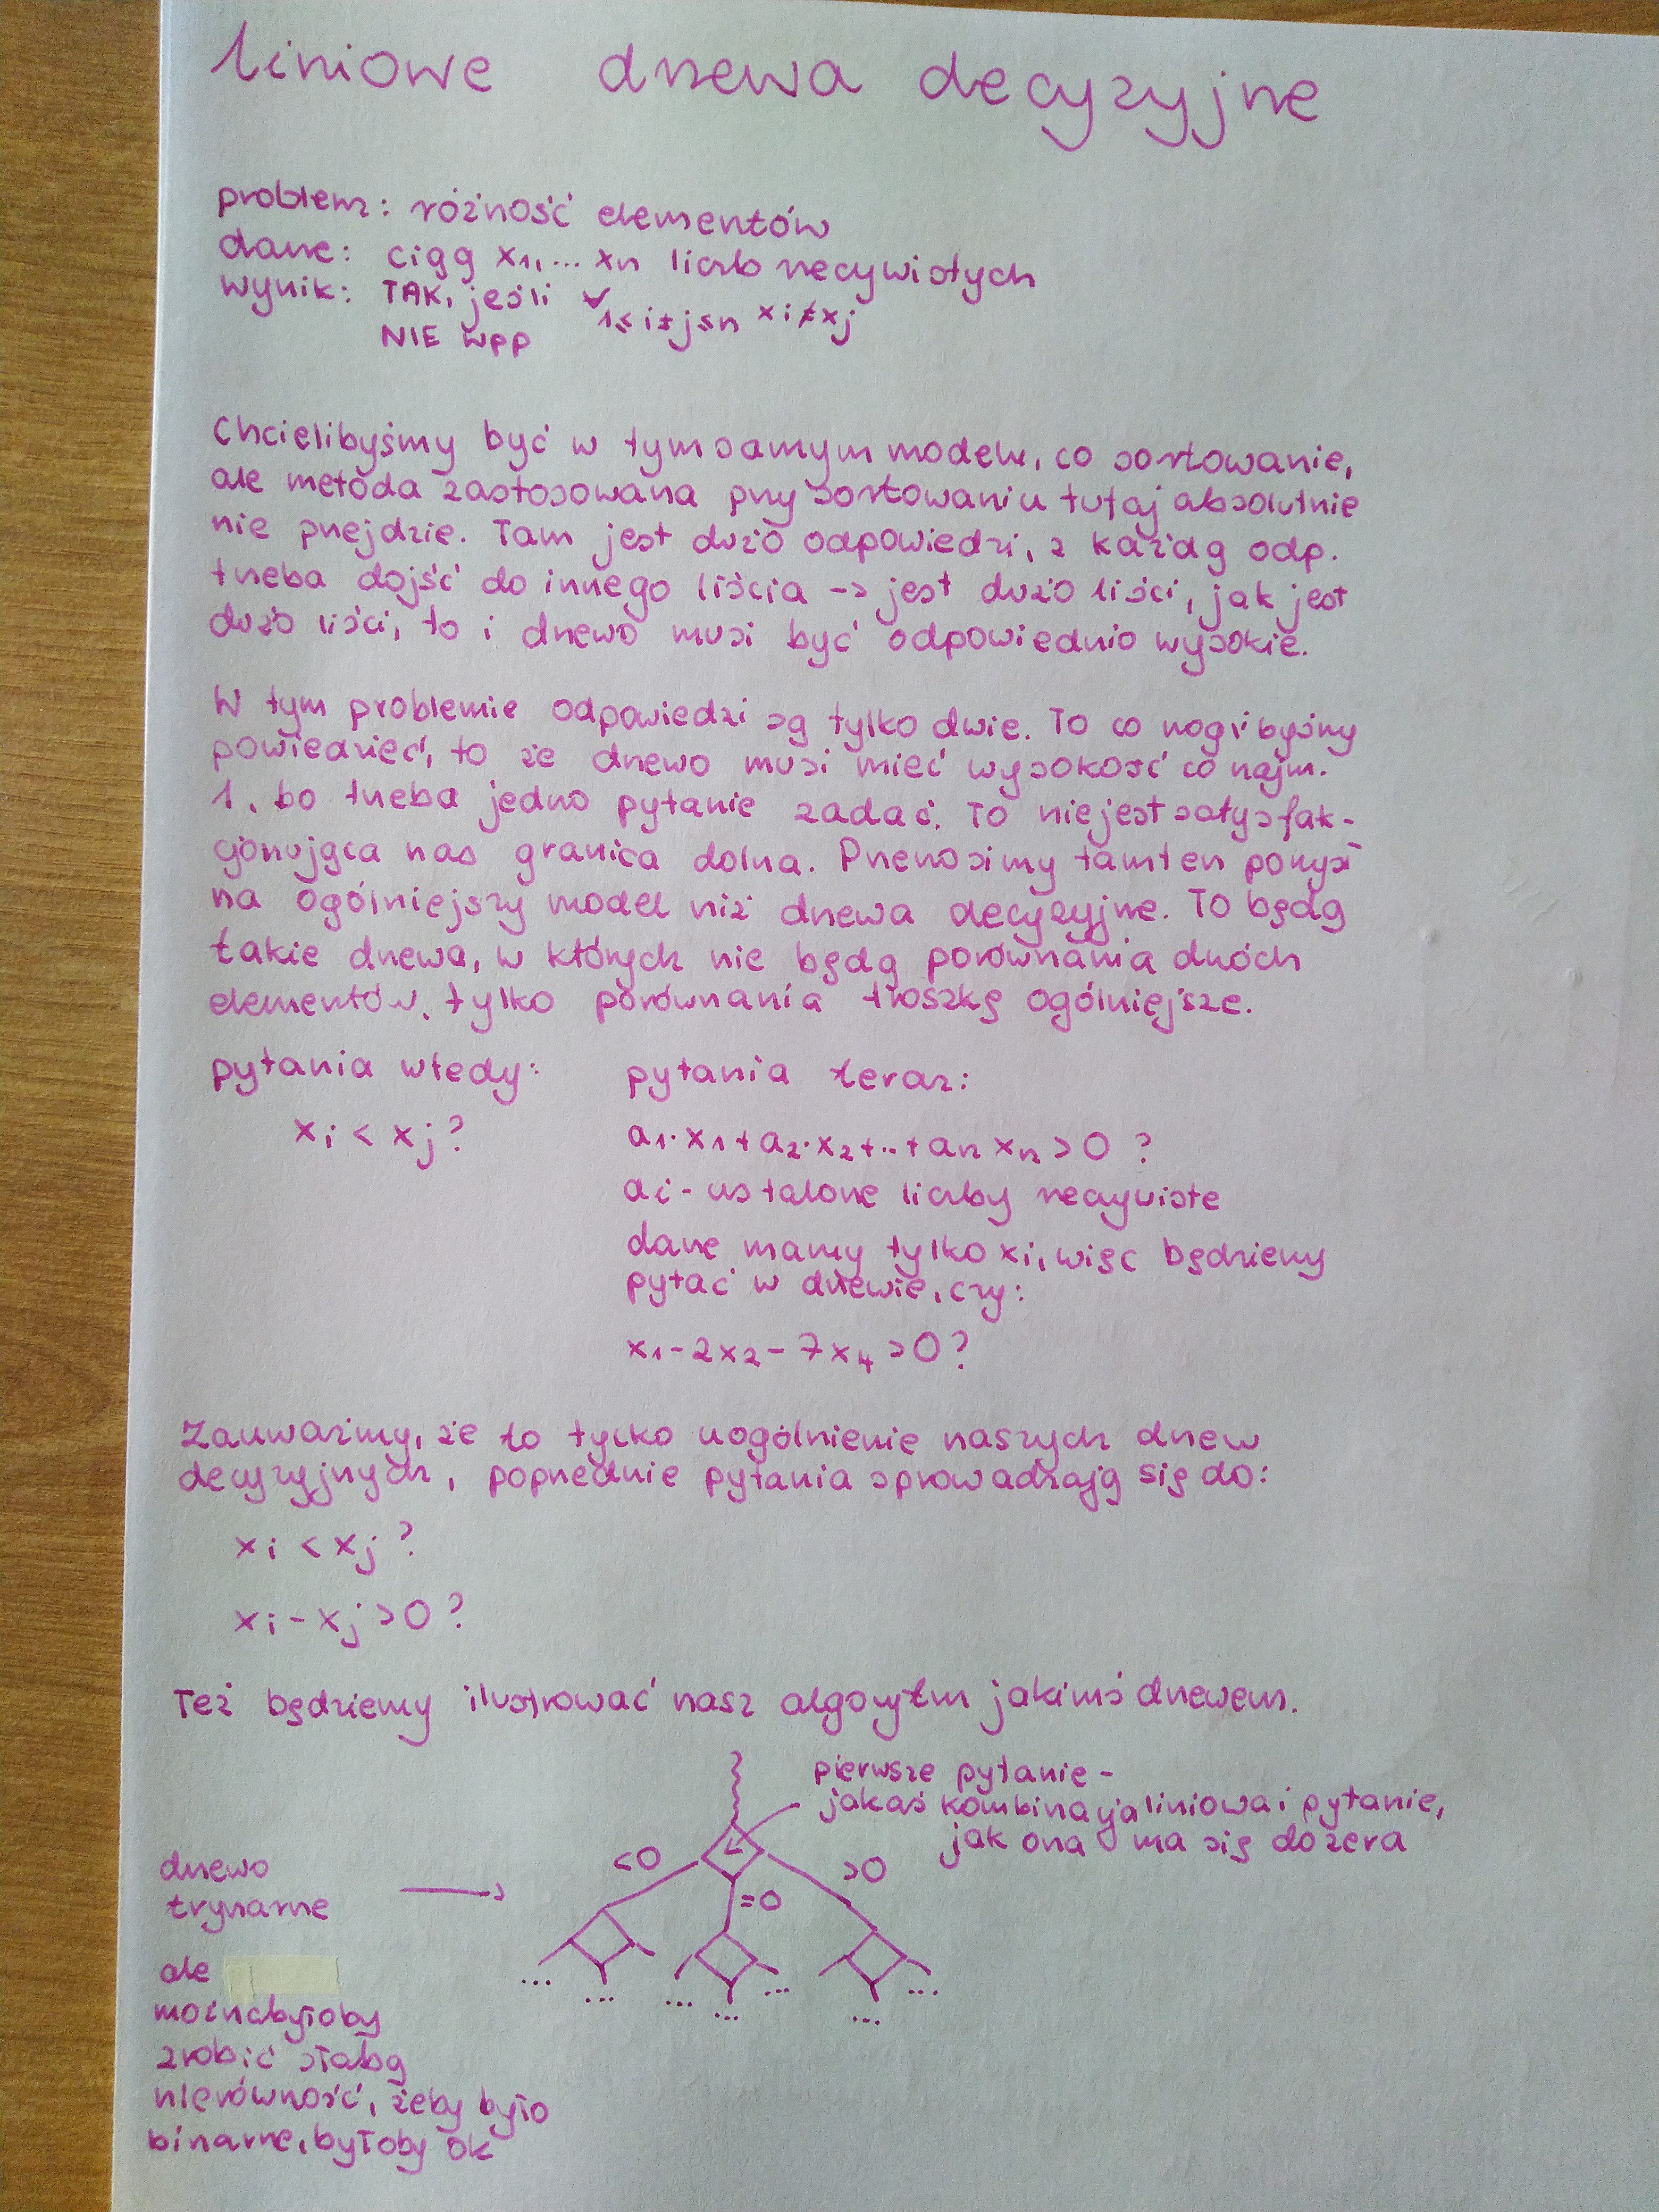 liniowe drzewa decyzyjne
problem: różność elementów
dane: ciąg x1, ... xn liczb rzeczywistych
wynik: TAK, jeśli ∀ 1≤i≠j≤n xi≠xj
NIE wpp
Chcielibyśmy być w tym samym modelu, co sortowanie,
ale metoda zastosowana przy sortowaniu tutaj absolutnie
nie przejdzie. Tam jest dużo odpowiedzi, z każdą odp.
trzeba dojść do innego liścia -> jest dużo liści, jak jest
dużo liści, to i drzewo musi być odpowiednio wysokie.
W tym problemie odpowiedzi są tylko dwie. To co moglibyśmy
powiedzieć, to że drzewo musi mieć wysokość co najm.
1, bo trzeba jedno pytanie zadać. To nie jest satysfak-
cjonująca nas granica dolna. Przenosimy tamten pomysł
na ogólniejszy model niż drzewa decyzyjne. To będą
takie drzewa, w których nie będą porównania dwóch
elementów, tylko porównania troszkę ogólniejsze.
pytania wtedy: pytania teraz:
xi < xj? a1·x1+a2·x2+...+an xn >0 ?
ai - ustalone liczby rzeczywiste
dane mamy tylko xi, więc będziemy
pytać w drzewie, czy:
x1-2x2-7x4 >0?
Zauważmy, że to tylko uogólnienie naszych drzew
decyzyjnych, poprzednie pytania sprowadzają się do:
xi < xj ?
xi - xj >0 ?
Też będziemy ilustrować nasz algorytm jakimś drzewem.
pierwsze pytanie -
jakaś kombinacja liniowa i pytanie,
jak ona ma się do zera
<0 =0 >0
drzewo
trynarne
... ... ... ... ... ... ...
ale
można byłoby
zrobić słabą
nierówność, żeby było
binarne, byłoby ok